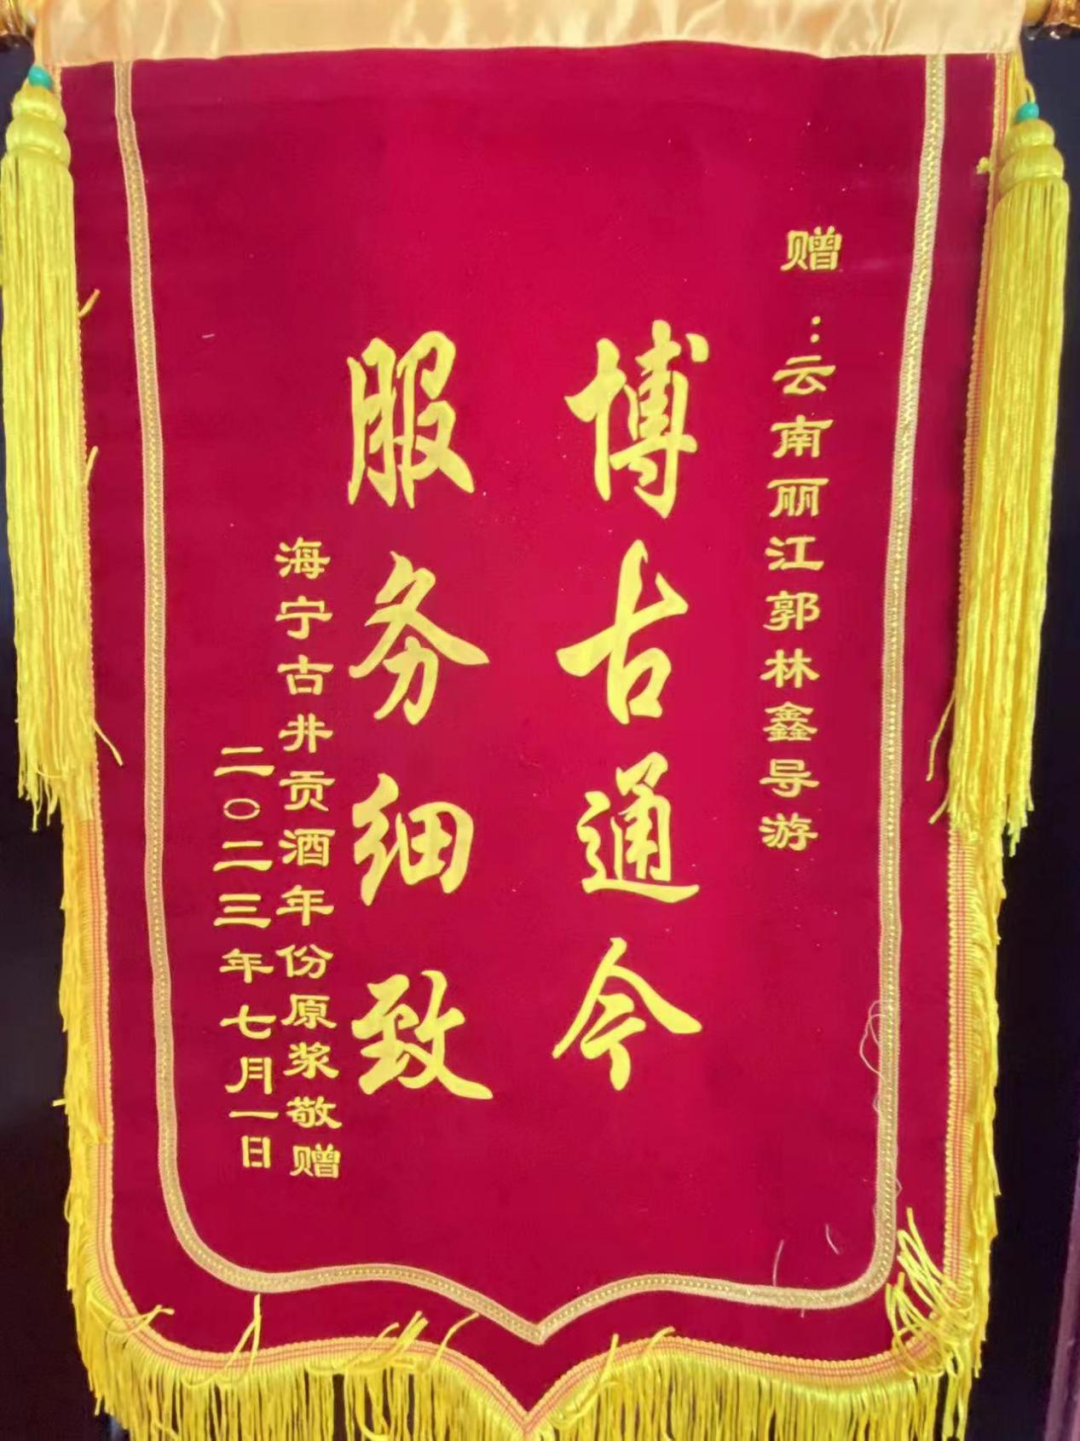 赠:云南丽江郭林鑫导游
博古通今
服务细致
海宁古井贡酒年份原浆敬赠
二〇二三年七月一日